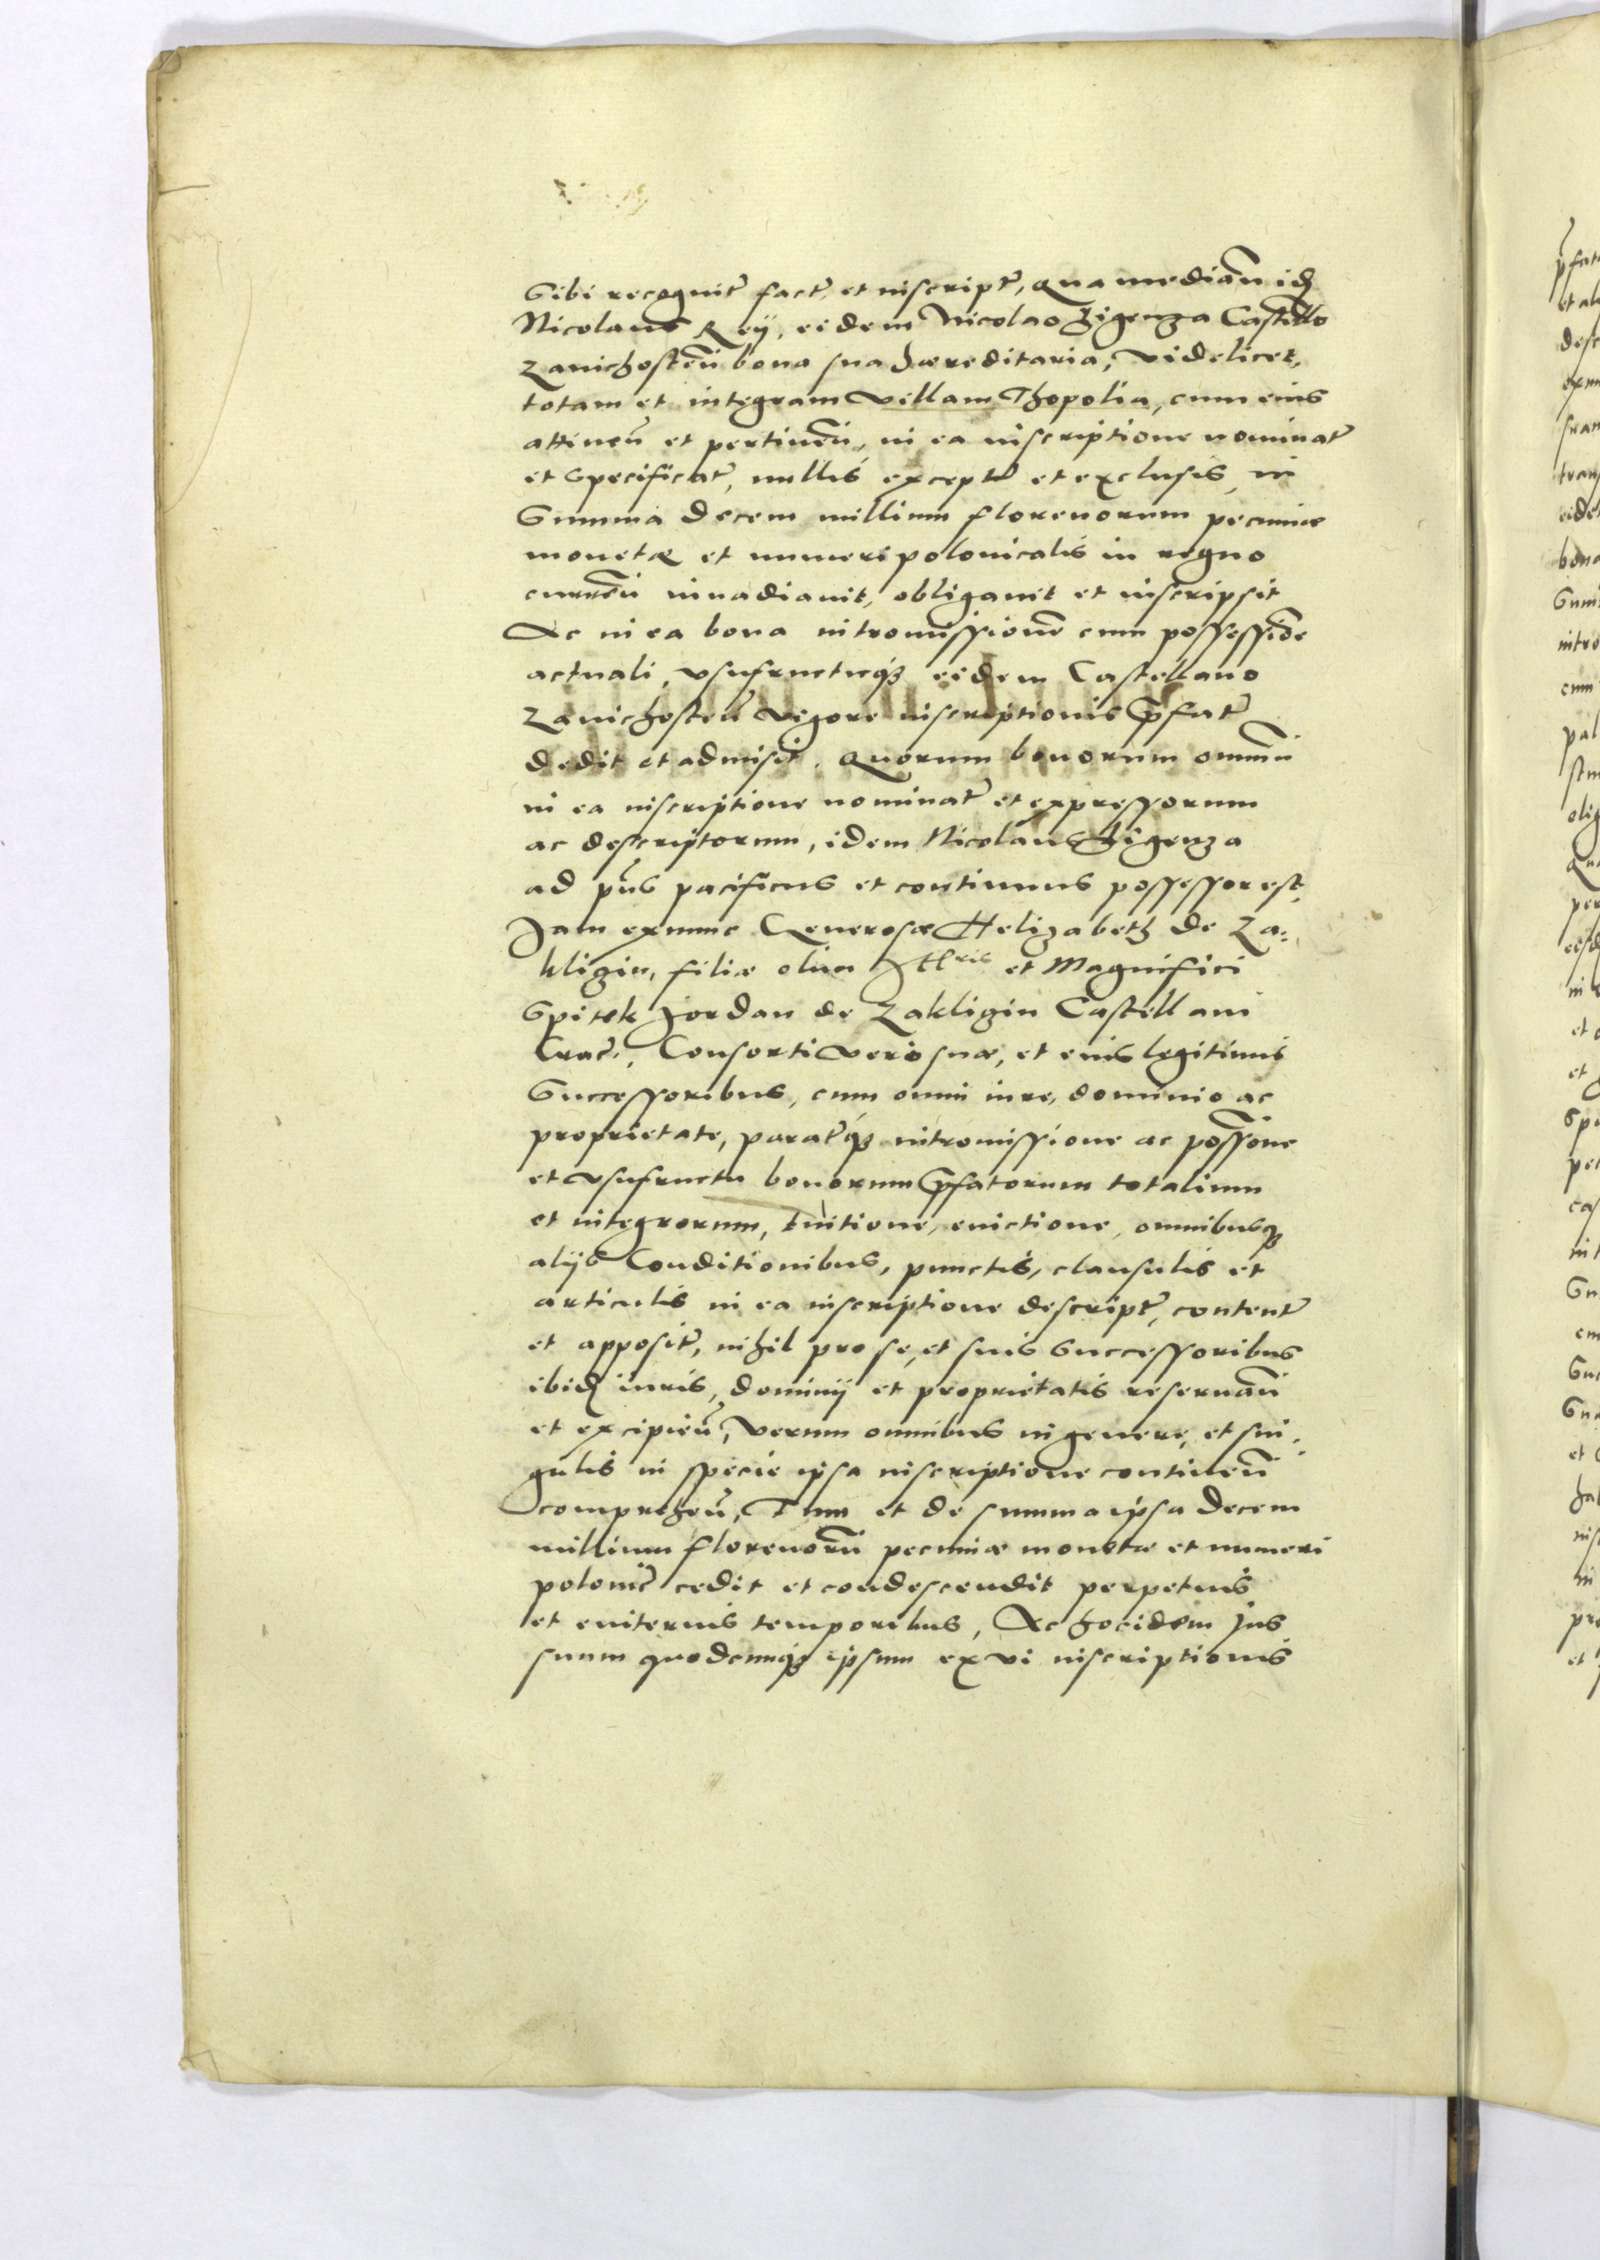 Sibi recognit fact et inscript, qua median id
Nicolaus Rey, eidem Nicolao Ligenza Castello
Zawichosten bona sua haereditaria, videlicet,
totam et integram villam Thopolia, cum eius
attinen et pertinen, in ea inscriptione nominat
et specificat, nullis except et exclusis, in
Summa decem millium florenorum pecuniae
monetae et numeri polonicalis in regno
curren inuadiauit, obligauit et inscripsit
Ac in ea bona intromissione cum possessione
actuali, vsufructuque eidem Castellano
Zawichosten vigore inscriptionis praefat
dedit et admisit. Quorum bonorum omnium
in ea inscriptione nominat et expressorum
ac descriptorum, idem Nicolaus Ligenza
ad pns pacificus et continuus possessor est,
Jam exnunc Generosae Helizabeth de Za-
kligin, filiae olim Illris et Magnifici
Spitek Jordan de Zakligin Castellani
Crac, Consorti vero suae, et eius legitimis
Successoribus, cum omni iure, dominio ac
proprietate, paratque intromissione ac possione
et vsufructu bonorum praefatorum totalium
et integrorum, tuitione, euictione, omnibusque
alijs Conditionibus, punctis, clausulis et
articulis in ea inscriptione descript, content
et apposit, nihil pro se, et suis Successoribus
ibid iuris, dominij et proprietatis reseruan
et excipien, verum omnibus in genere, et sin-
gulis in specie ipsa inscriptione continen
comprehen, Tum et de summa ipsa decem
millium florenorum pecuniae monetae et numeri
polonic cedit et condescendit perpetuis
et euiternis temporibus, Ac hoc idem Jus
suum quodcunque ipsum ex vi inscriptionis